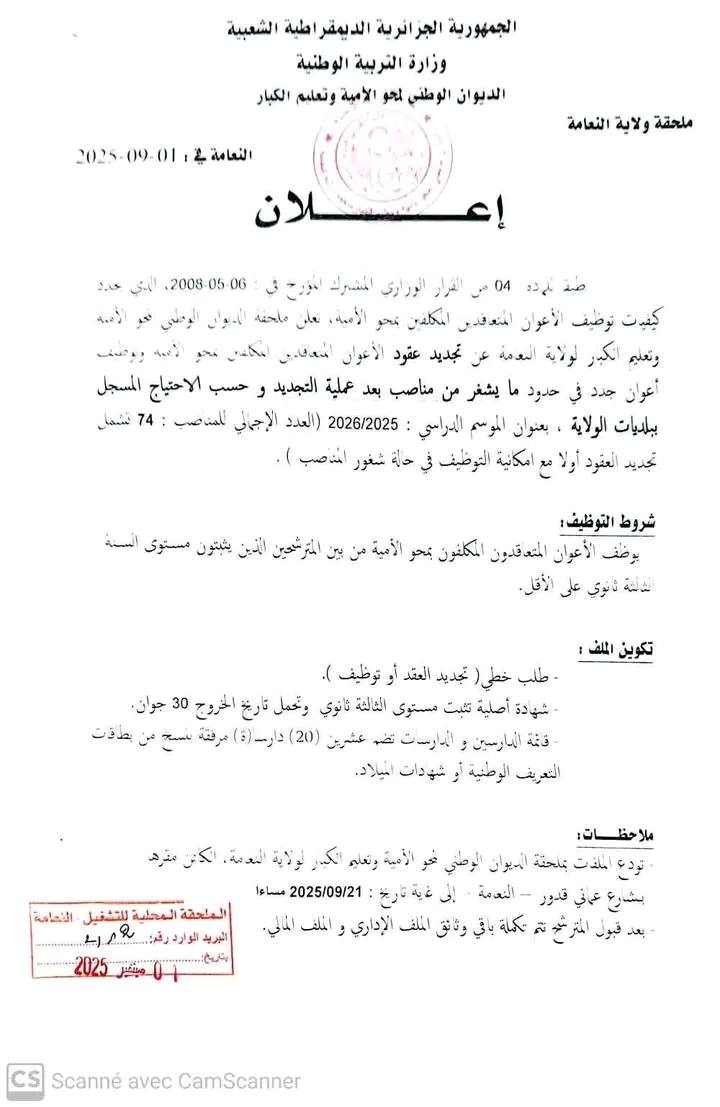 الجمهورية الجزائرية الديمقراطية الشعبية
وزارة التربية الوطنية
الديوان الوطني لمحو الأمية وتعليم الكبار
ملحقة ولاية النعامة
النعامة في : 01-09-2025
إعـــــــــلان
04 من القرار الوزاري المشترك المؤرخ في : 06-05-2008، الذي حدد
كيفيات توظيف الأعوان المتعاقدين المكلفين بمحو الأمية، تعلن ملحقة الديوان الوطني لمحو الأمية
وتعليم الكبار لولاية النعامة عن تجديد عقود الأعوان المتعاقدين المكلفين بمحو الأمية وتوظيف
أعوان جدد في حدود ما يشغر من مناصب بعد عملية التجديد و حسب الاحتياج المسجل
ببلديات الولاية ، بعنوان الموسم الدراسي : 2026/2025 (العدد الإجمالي للمناصب : 74 تشمل
تجديد العقود أولا مع امكانية التوظيف في حالة شغور المناصب ) .
شروط التوظيف:
يوظف الأعوان المتعاقدون المكلفون بمحو الأمية من بين المترشحين الذين يثبتون مستوى السنة
الثالثة ثانوي على الأقل.
تكوين الملف :
- طلب خطي( تجديد العقد أو توظيف ).
- شهادة أصلية تثبت مستوى الثالثة ثانوي وتحمل تاريخ الخروج 30 جوان.
- قائمة الدارسين و الدارسات تضم عشرين (20) دارسا(ة) مرفقة بنسخ من بطاقات
التعريف الوطنية أو شهادات الميلاد.
ملاحظـــات:
- تودع الملفات بملحقة الديوان الوطني لمحو الأمية وتعليم الكبار لولاية النعامة، الكائن مقرها
بشارع عماني قدور – النعامة - إلى غاية تاريخ : 2025/09/21 مساءا
- بعد قبول المترشح تتم تكملة باقي وثائق الملف الإداري و الملف المالي.
الملحقة المحلية للتشغيل - النعامة
البريد الوارد رقم:
بتاريخ: 01 سبتمبر 2025
CS Scanné avec CamScanner